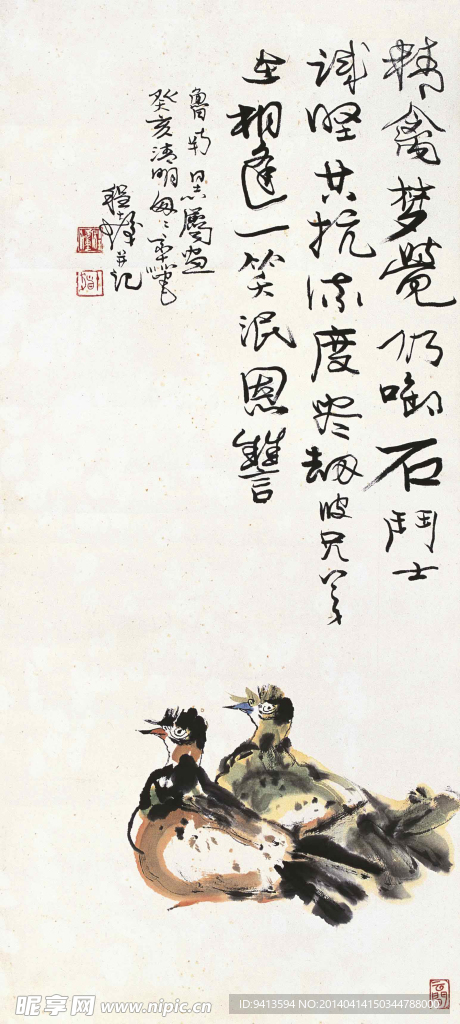 精禽梦觉仍衔石斗士
诚坚共抗流度尽劫波兄弟
在相逢一笑泯恩雠
癸亥清明
程十发并记
昵享网 www.nipic.cn
ID:9413594 NO:20140414150344788000